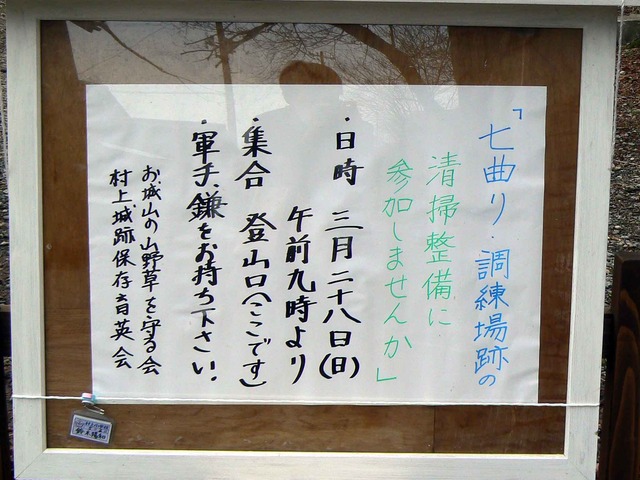 「七曲り・調練場跡の
清掃整備に
参加しませんか」
・日時 三月二十八日(日)
午前九時より
・集合 登山口(ここです)
・軍手、鎌をお持ち下さい.
お城山の山野草を守る会
村上城跡保存育英会